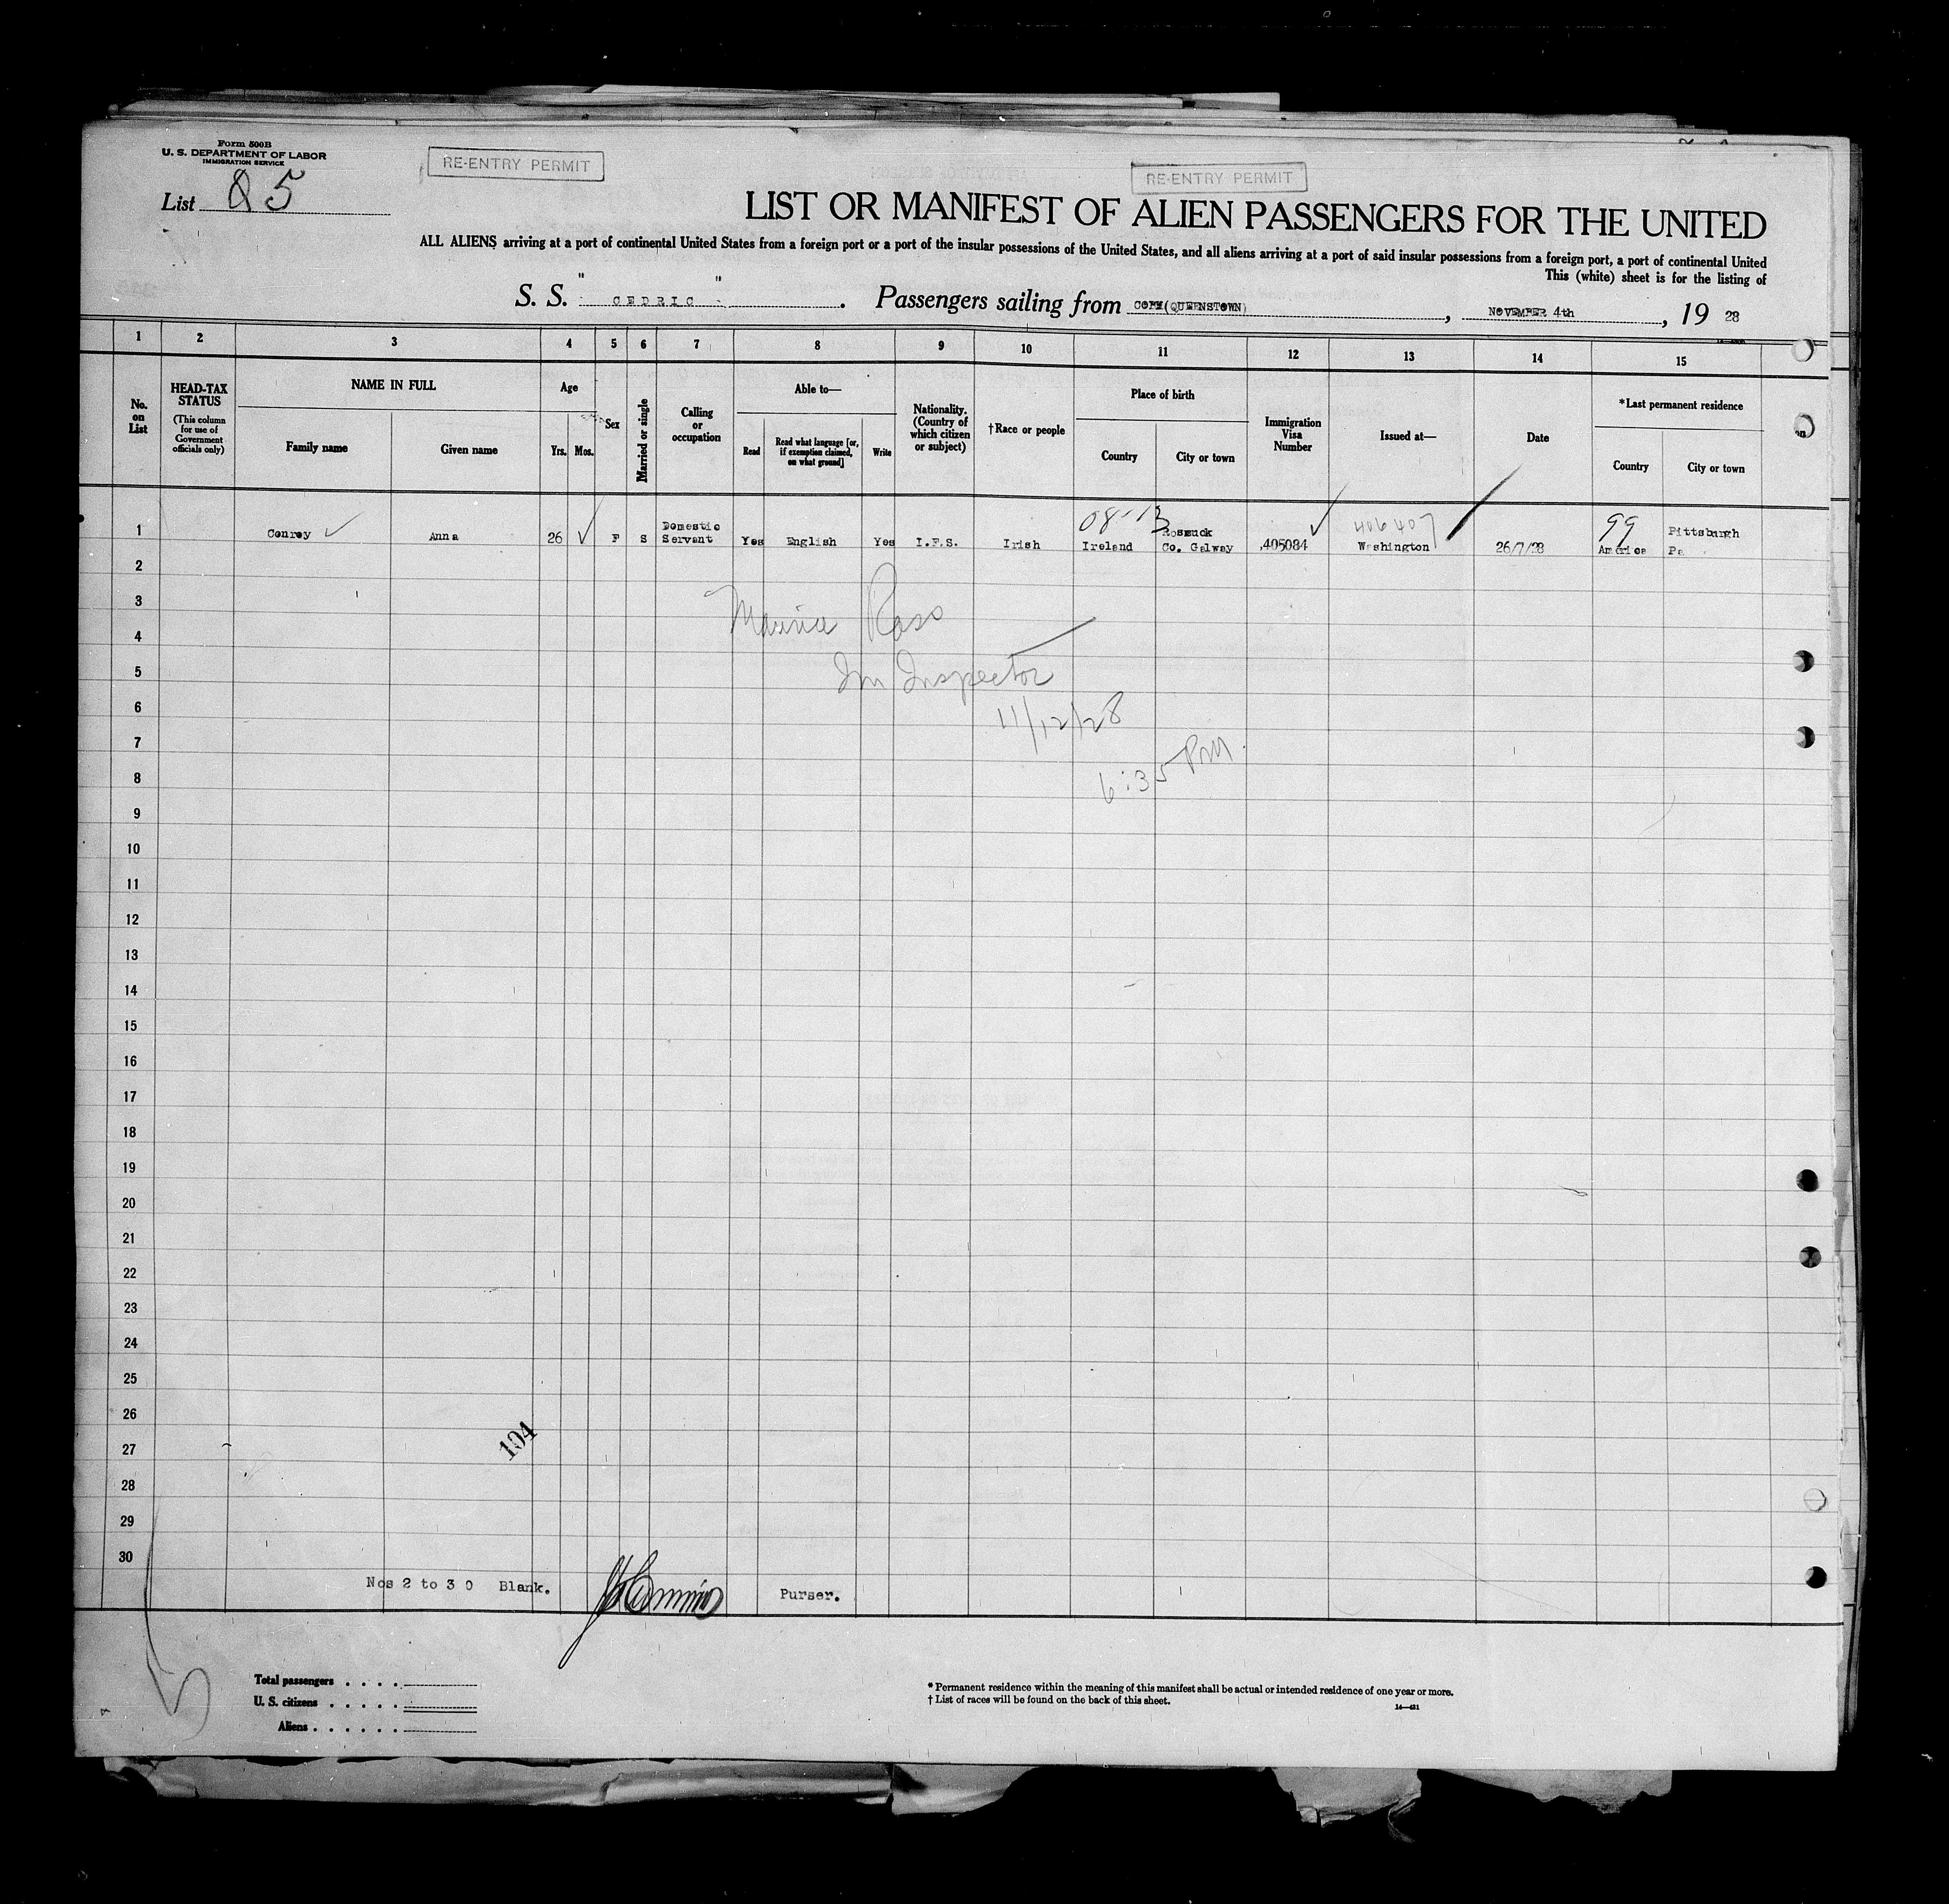 Form 500B
U. S. DEPARTMENT OF LABOR
IMMIGRATION SERVICE
RE-ENTRY PERMIT
RE-ENTRY PERMIT
List 85
LIST OR MANIFEST OF ALIEN PASSENGERS FOR THE UNITED
ALL ALIENS arriving at a port of continental United States from a foreign port or a port of the insular possessions of the United States, and all aliens arriving at a port of said insular possessions from a foreign port, a port of continental United
This (white) sheet is for the listing of
S. S. " CEDRIC " . Passengers sailing from COPH(QUEENSTOWN) , NOVEMBER 4th , 19 28
1 2 3 4 5 6 7 8 9 10 11 12 13 14 15
No. on List
HEAD-TAX STATUS
(This column for use of Government officials only)
NAME IN FULL
Family name
Given name
Age
Yrs.
Mos.
Sex
Married or single
Calling or occupation
Able to—
Read
Read what language [or, if exemption claimed, on what ground]
Write
Nationality. (Country of which citizen or subject)
†Race or people
Place of birth
Country
City or town
Immigration Visa Number
Issued at—
Date
*Last permanent residence
Country
City or town
08-13
406407
99
1 Conroy Anna 26 F S Domestic Servant Yes English Yes I.F.S. Irish Ireland Rosmuck Co. Galway 405084 Washington 26/7/28 America Pittsburgh Pa
2
3
Maurice Ross
4
5
Im Inspector
6
11/12/28
7
8
6:35 PM.
9
10
11
12
13
14
15
16
17
18
19
20
21
22
23
24
25
26
104
27
28
29
30
Nos 2 to 30 Blank. Purser.
Total passengers . . . .
U. S. citizens . . . . .
Aliens . . . . . .
* Permanent residence within the meaning of this manifest shall be actual or intended residence of one year or more.
† List of races will be found on the back of this sheet.
14—431